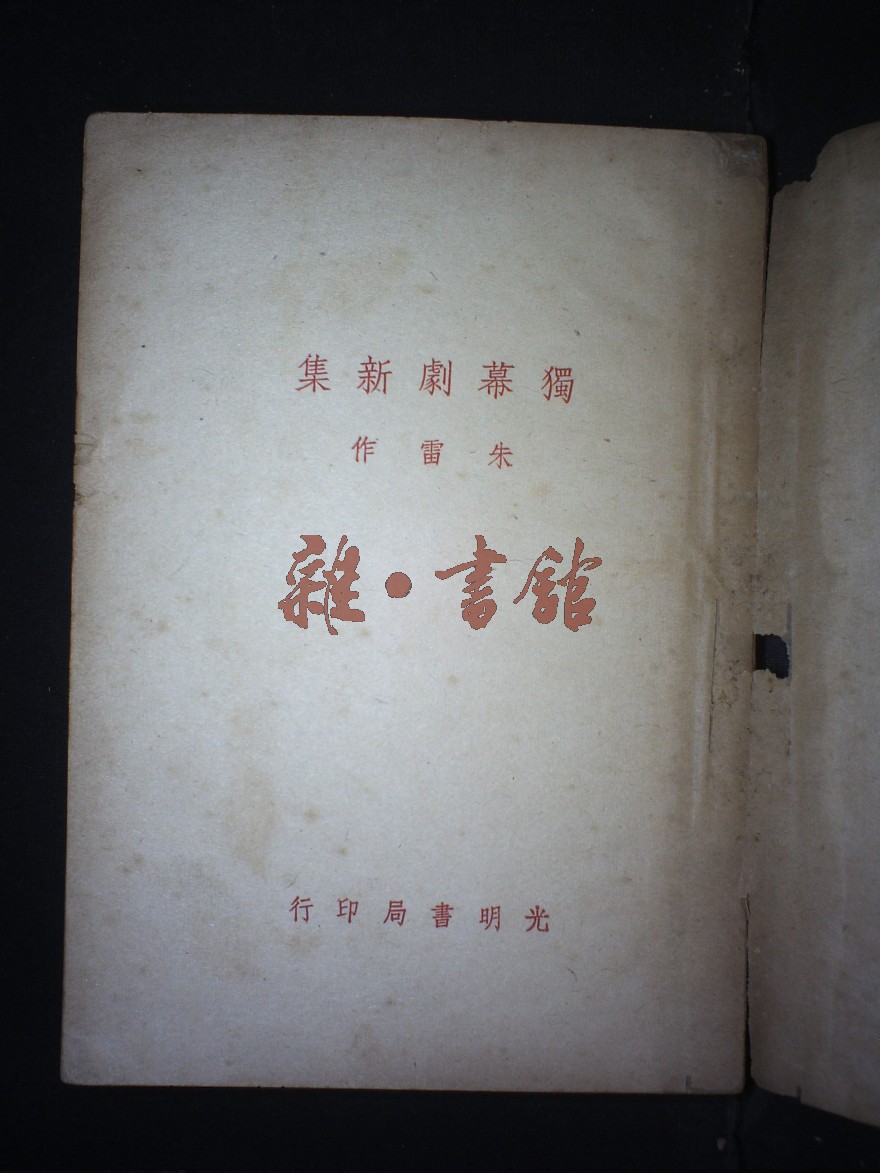 獨幕劇新集
朱雷作
雜•書館
光明書局印行